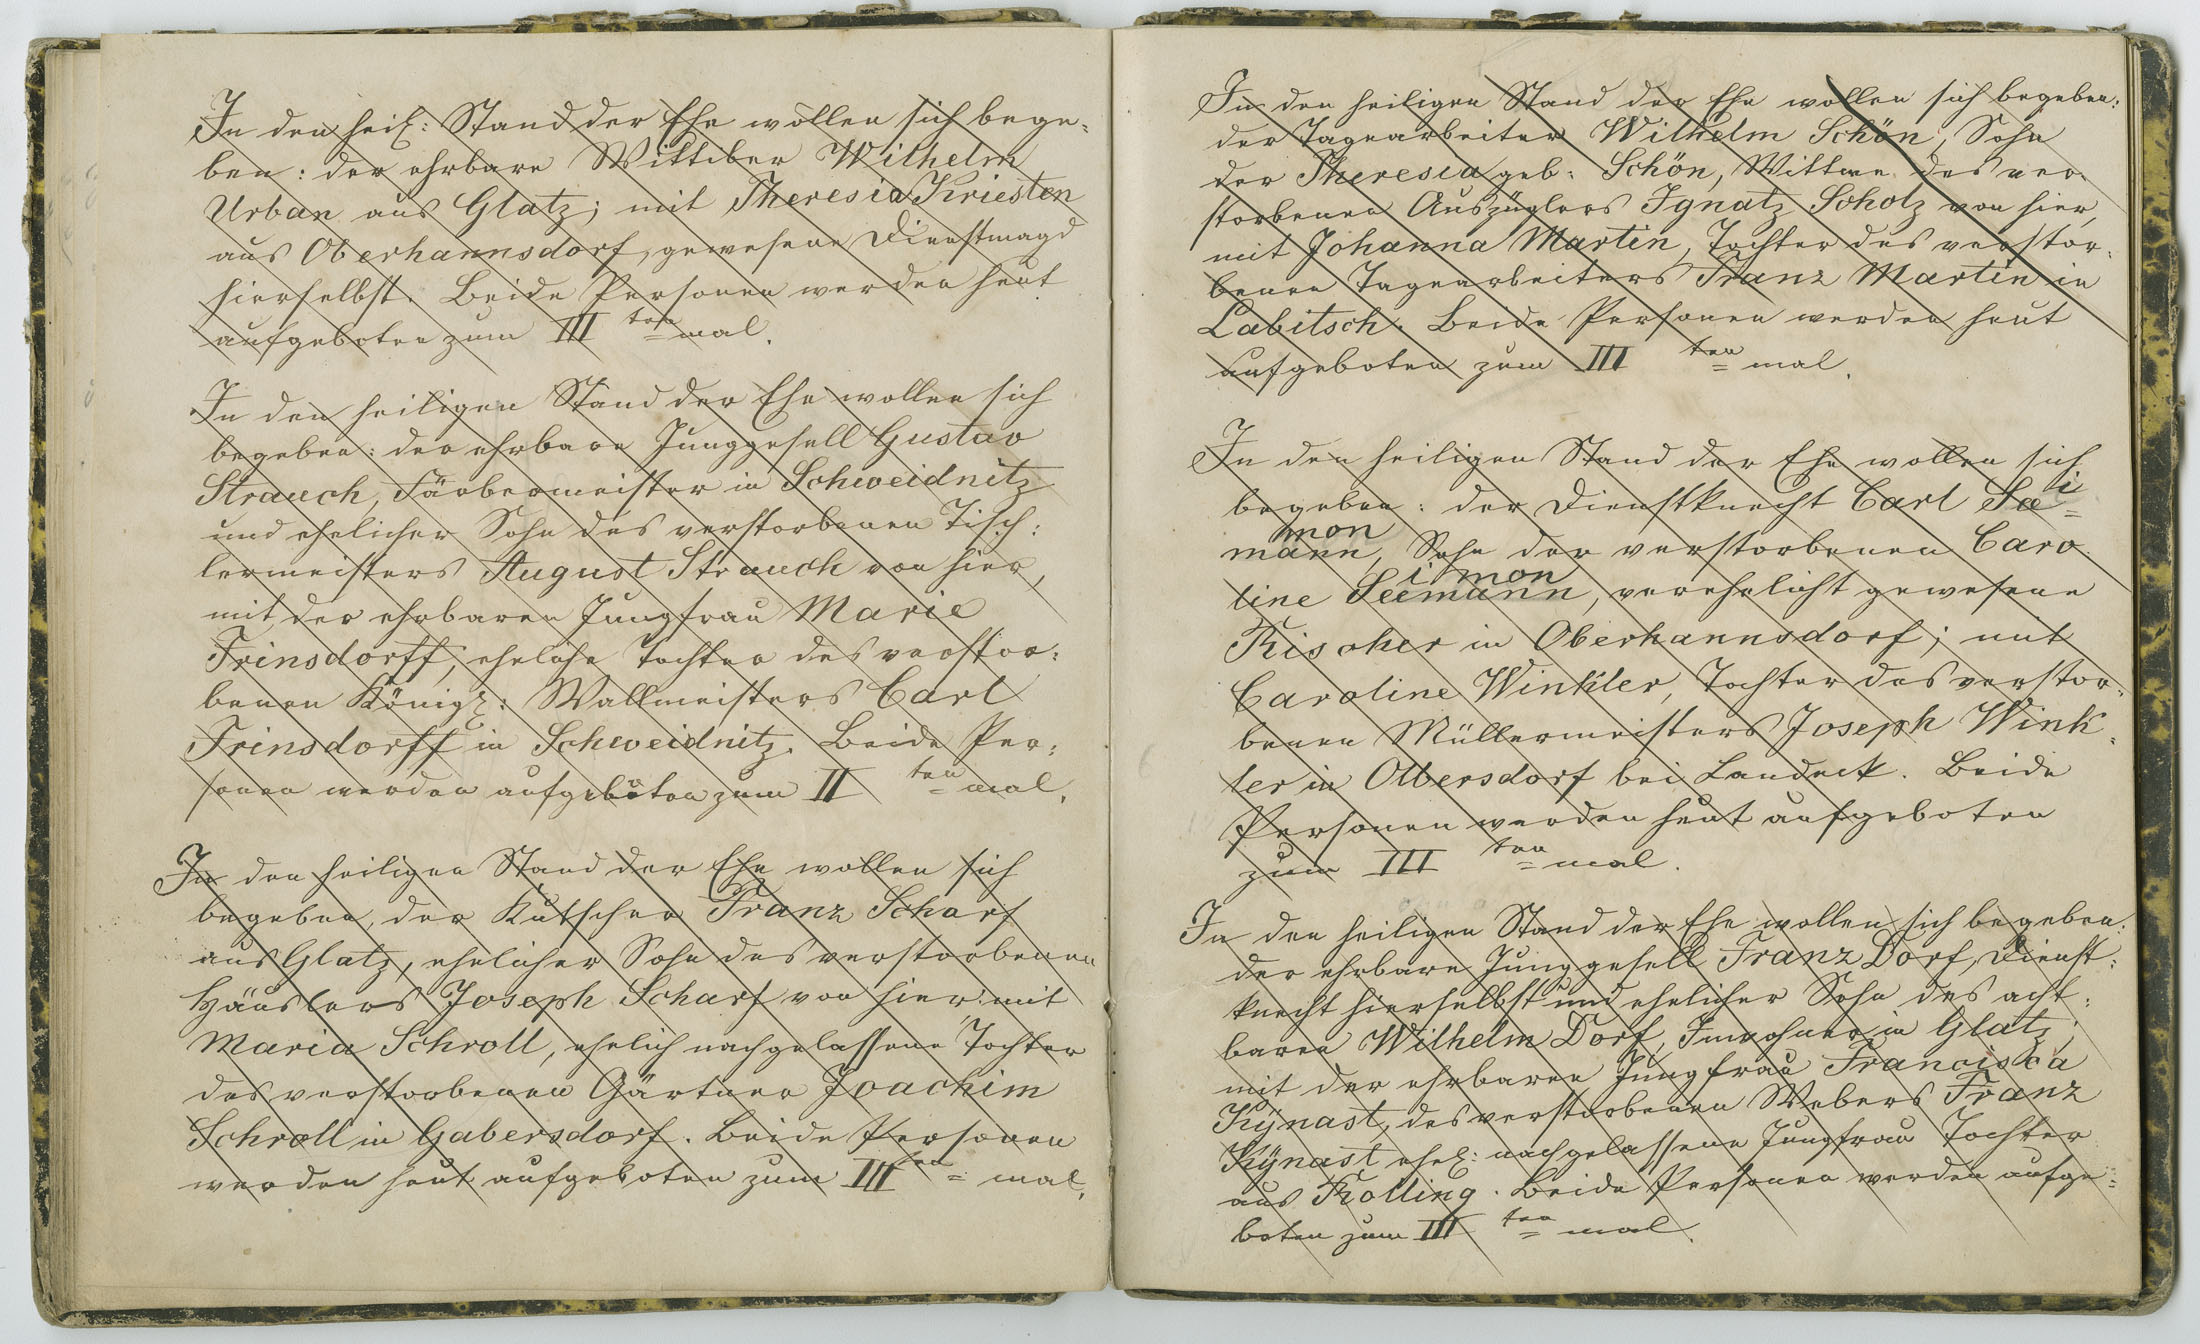 In den heil: Stand der Ehe wollen sich bege-
ben: der ehrbare Wittiber Wilhelm
Urban aus Glatz; mit Theresia Kriesten
aus Oberhannsdorf, gewesene Dienstmagd
hierselbst. Beide Personen werden heut
aufgeboten zum III ten mal.
In den heiligen Stand der Ehe wollen sich
begeben: der ehrbare Junggesell Gustav
Strauch, Färbermeister in Schweidnitz
und ehelicher Sohn des verstorbenen Tisch:
lermeisters August Strauch von hier,
mit der ehrbaren Jungfrau Marie
Frinsdorff, eheliche Tochter des verstor:
benen Königl: Wallmeisters Carl
Frinsdorff in Schweidnitz. Beide Per:
sonen werden aufgeboten zum II ten mal.
In den heiligen Stand der Ehe wollen sich
begeben, der Kutscher Franz Scharf
aus Glatz, ehelicher Sohn des verstorbenen
Häuslers Joseph Scharf von hier: mit
Maria Schroll, ehelich nachgelassene Tochter
des verstorbenen Gärtner Joachim
Schroll in Gabersdorf. Beide Personen
werden heut aufgeboten zum III ten = mal.
In den heiligen Stand der Ehe wollen sich begeben:
der Tagearbeiter Wilhelm Schön, Sohn
der Theresia geb: Schön, Wittwe des ver-
storbenen Auszüglers Ignatz Scholz von hier,
mit Johanna Martin, Tochter des verstor:
benen Tagearbeiters Franz Martin in
Labitsch. Beide Personen werden heut
aufgeboten zum III ten = mal.
In den heiligen Stand der Ehe wollen sich
begeben: der Dienstknecht Carl See i =
mann mon, Sohn der verstorbenen Caro
line Seemann i mon, verehelicht gewesene
Rischer in Oberhannsdorf; mit
Caroline Winkler, Tochter des verstor-
benen Müllermeisters Joseph Wink-
ler in Olbersdorf bei Landeck. Beide
Personen werden heut aufgeboten
zum III ten = mal.
In den heiligen Stand der Ehe wollen sich begeben:
der ehrbare Junggesell Franz Dorf, Dienst:
knecht hierselbst und ehelicher Sohn des acht:
baren Wilhelm Dorf, Inwohner in Glatz;
mit der ehrbaren Jungfrau Franciska
Kÿnast, des verstorbenen Webers Franz
Kÿnast ehel: nachgelassene Jungfrau Tochter
aus Rolling. Beide Personen werden aufge-
boten zum III ten = mal.